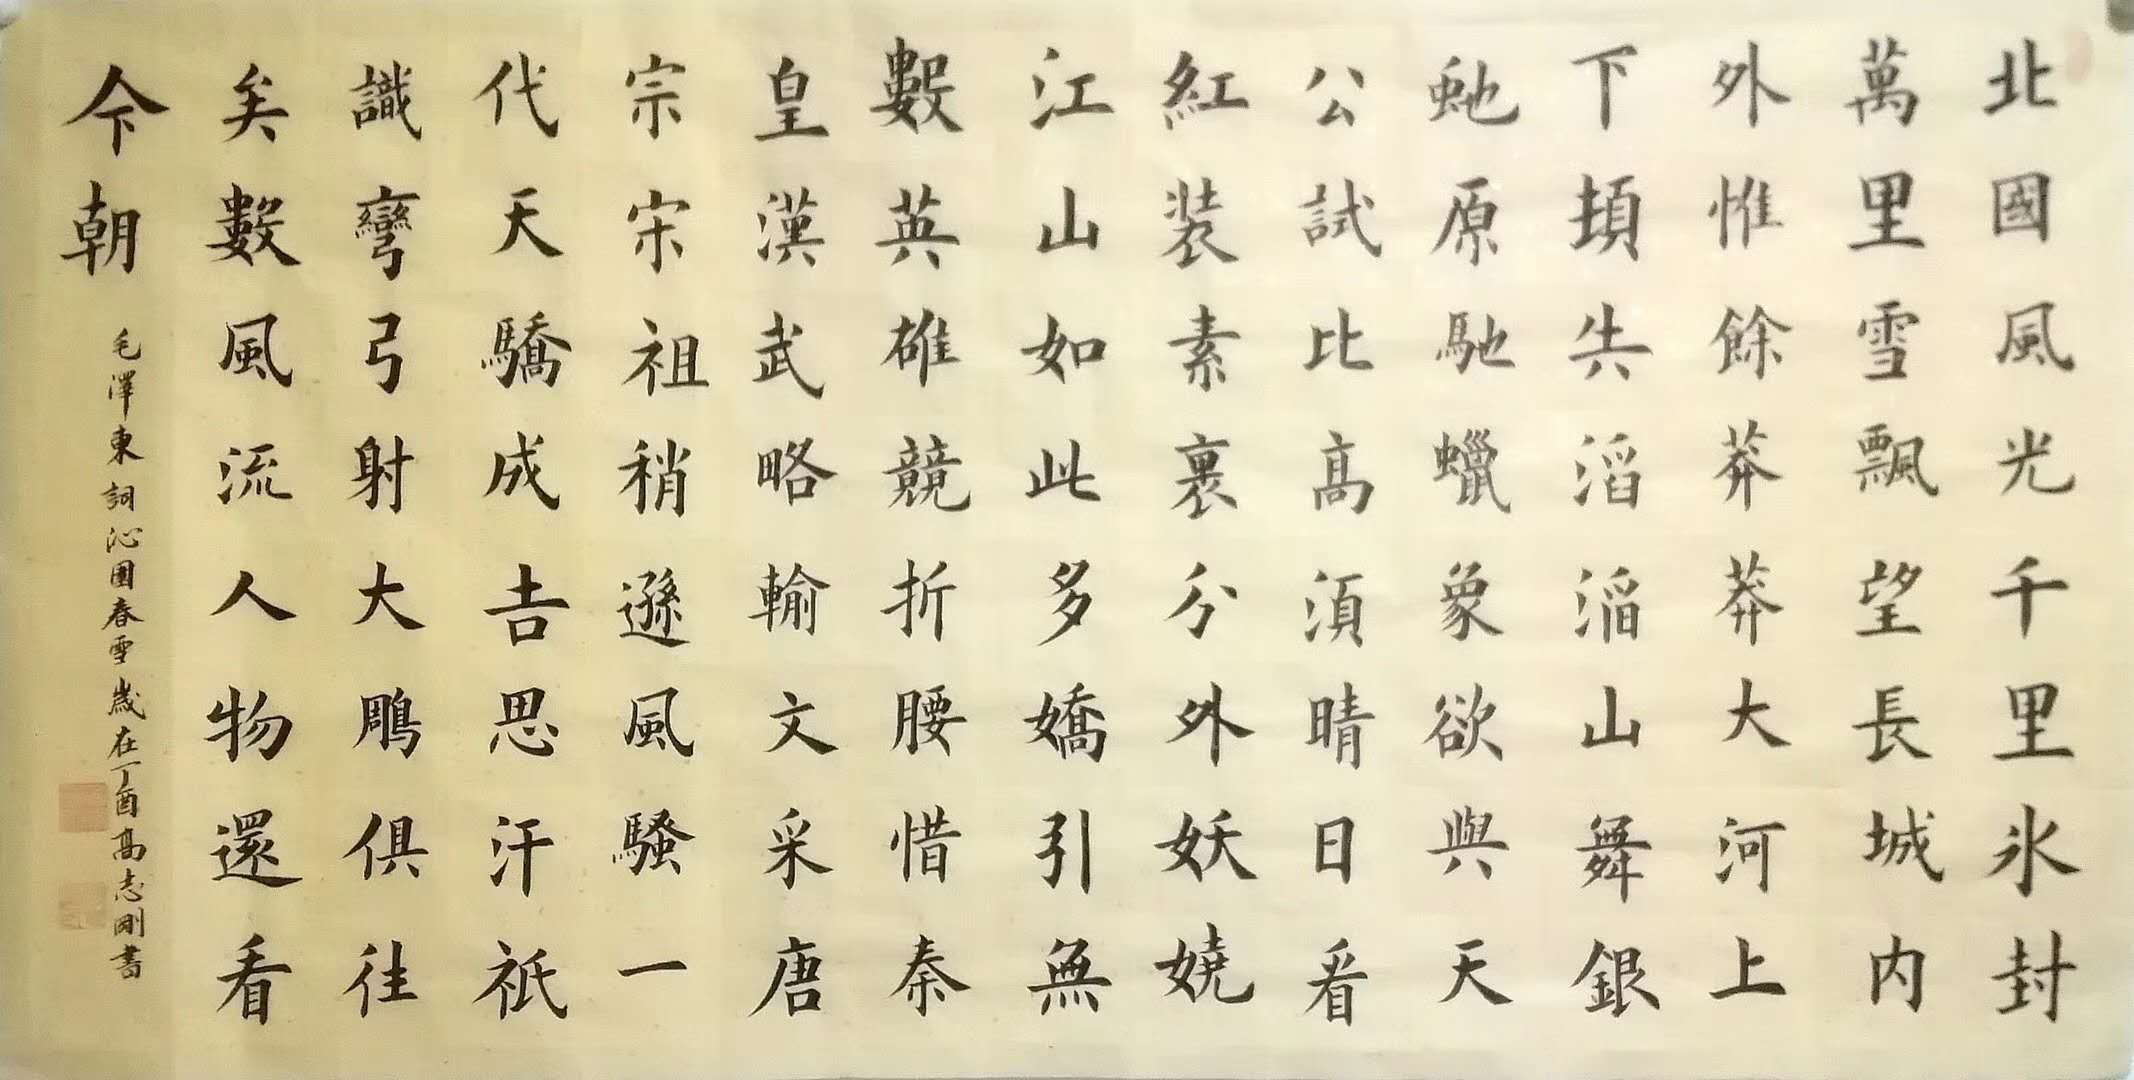 北國風光千里氷封
萬里雪飄望長城内
外惟餘莽莽大河上
下頓失滔滔山舞銀
虵原馳蠟象欲與天
公試比髙湏晴日看
紅装素裹分外妖嬈
江山如此多嬌引無
數英雄競折腰惜秦
皇漢武略輸文采唐
宗宋祖稍遜風騷一
代天驕成吉思汗祇
識彎弓射大鵰俱往
矣數風流人物還看
今朝
毛澤東詞沁園春雪歲在丁酉髙志剛書